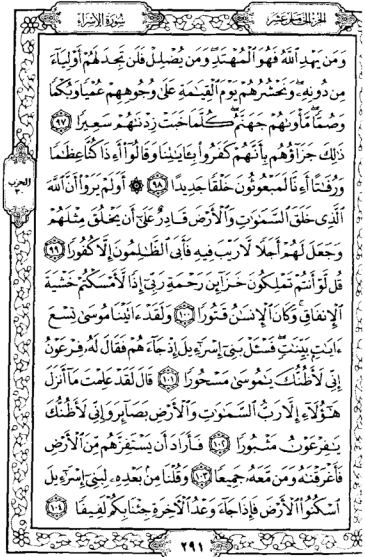 الجزء الخامس عشر
سورة الإسراء
وَمَن يَهْدِ ٱللَّهُ فَهُوَ ٱلْمُهْتَدِ ۖ وَمَن يُضْلِلْ فَلَن تَجِدَ لَهُمْ أَوْلِيَآءَ
مِن دُونِهِۦ ۖ وَنَحْشُرُهُمْ يَوْمَ ٱلْقِيَـٰمَةِ عَلَىٰ وُجُوهِهِمْ عُمْيًا وَبُكْمًا
وَصُمًّا ۖ مَّأْوَىٰهُمْ جَهَنَّمُ ۖ كُلَّمَا خَبَتْ زِدْنَـٰهُمْ سَعِيرًا ٩٧
ذَٰلِكَ جَزَآؤُهُم بِأَنَّهُمْ كَفَرُوا۟ بِـَٔايَـٰتِنَا وَقَالُوٓا۟ أَءِذَا كُنَّا عِظَـٰمًا
وَرُفَـٰتًا أَءِنَّا لَمَبْعُوثُونَ خَلْقًا جَدِيدًا ٩٨ ۞ أَوَلَمْ يَرَوْا۟ أَنَّ ٱللَّهَ
ٱلَّذِى خَلَقَ ٱلسَّمَـٰوَٰتِ وَٱلْأَرْضَ قَادِرٌ عَلَىٰٓ أَن يَخْلُقَ مِثْلَهُمْ
وَجَعَلَ لَهُمْ أَجَلًا لَّا رَيْبَ فِيهِ فَأَبَى ٱلظَّـٰلِمُونَ إِلَّا كُفُورًا ٩٩
قُل لَّوْ أَنتُمْ تَمْلِكُونَ خَزَآئِنَ رَحْمَةِ رَبِّىٓ إِذًا لَّأَمْسَكْتُمْ خَشْيَةَ
ٱلْإِنفَاقِ ۚ وَكَانَ ٱلْإِنسَـٰنُ قَتُورًا ١٠٠ وَلَقَدْ ءَاتَيْنَا مُوسَىٰ تِسْعَ
ءَايَـٰتٍۭ بَيِّنَـٰتٍ ۖ فَسْـَٔلْ بَنِىٓ إِسْرَٰٓءِيلَ إِذْ جَآءَهُمْ فَقَالَ لَهُۥ فِرْعَوْنُ
إِنِّى لَأَظُنُّكَ يَـٰمُوسَىٰ مَسْحُورًا ١٠١ قَالَ لَقَدْ عَلِمْتَ مَآ أَنزَلَ
هَـٰٓؤُلَآءِ إِلَّا رَبُّ ٱلسَّمَـٰوَٰتِ وَٱلْأَرْضِ بَصَآئِرَ وَإِنِّى لَأَظُنُّكَ
يَـٰفِرْعَوْنُ مَثْبُورًا ١٠٢ فَأَرَادَ أَن يَسْتَفِزَّهُم مِّنَ ٱلْأَرْضِ
فَأَغْرَقْنَـٰهُ وَمَن مَّعَهُۥ جَمِيعًا ١٠٣ وَقُلْنَا مِنۢ بَعْدِهِۦ لِبَنِىٓ إِسْرَٰٓءِيلَ
ٱسْكُنُوا۟ ٱلْأَرْضَ فَإِذَا جَآءَ وَعْدُ ٱلْـَٔاخِرَةِ جِئْنَا بِكُمْ لَفِيفًا ١٠٤
الحزب
٣٠
٢٩١